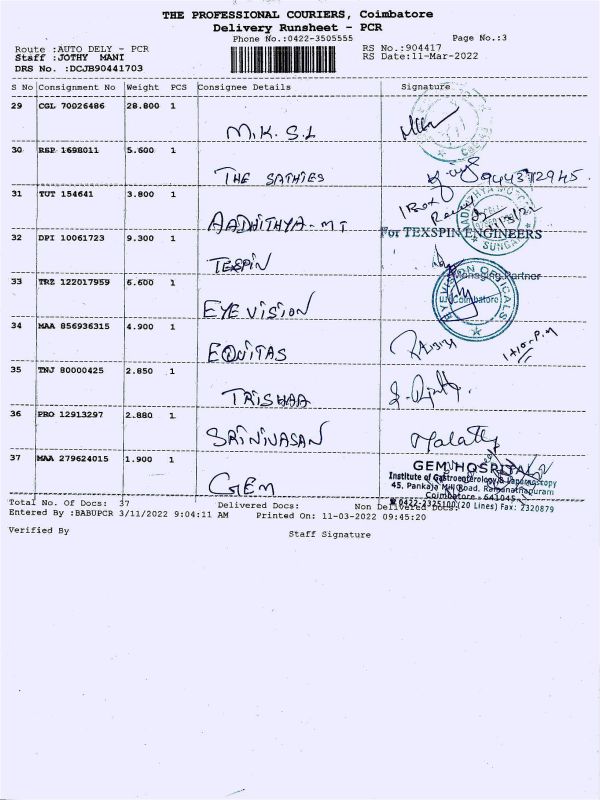 THE PROFESSIONAL COURIERS, Coimbatore
Delivery Runsheet - PCR
Phone No.:0422-3505555
Page No.:3
Route :AUTO DELY - PCR
RS No.:904417
Staff :JOTHY MANI
RS Date:11-Mar-2022
DRS No. :DCJB90441703
S No Consignment No Weight PCS Consignee Details Signature
29 CGL 70026486 28.800 1
M.K.S.L
30 RSP 1698011 5.600 1
THE SATHIES 9443712945.
31 TUT 154641 3.800 1
1 Box
AADHITHYA-MT
For TEXSPIN ENGINEERS
SUNGAM
32 DPI 10061723 9.300 1
TEXSPIN
Managing Partner
33 TRZ 122017959 6.600 1
EYE VISION
EYE VISION OPTICALS
Coimbatore
34 MAA 856936315 4.900 1
EQUITAS
35 TNJ 80000425 2.850 1
TRISHAA
36 PRO 12913297 2.880 1
SRINIVASAN Malathy
37 MAA 279624015 1.900 1
GEM
GEM HOSPITAL
Institute of Gastroenterology & Laparoscopy
45, Pankaja Mill Road, Ramanathapuram
Coimbatore - 641045
0422-2325100 (20 Lines) Fax: 2320879
Total No. Of Docs: 37 Delivered Docs: Non Delivered Docs:
Entered By :BABUPCR 3/11/2022 9:04:11 AM Printed On: 11-03-2022 09:45:20
Verified By Staff Signature